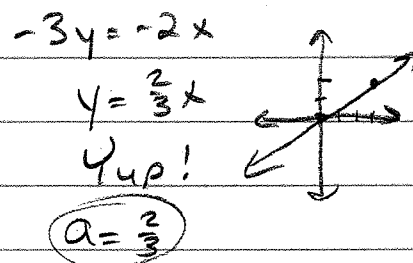 -3y = -2x
y = 2/3 x
Yup!
a = 2/3